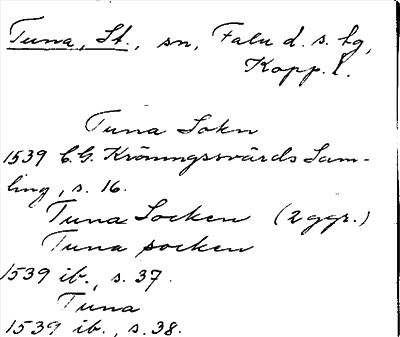 Tuna, St., sn, Falu d. s. tg,
Kopp. l.
Tuna Sokn
1539 C.G. Kröningssvärds Sam-
ling, s. 16.
Tuna Socken (2 ggr.)
Tuna socken
1539 ib., s. 37.
Tuna
1539 ib., s. 38.